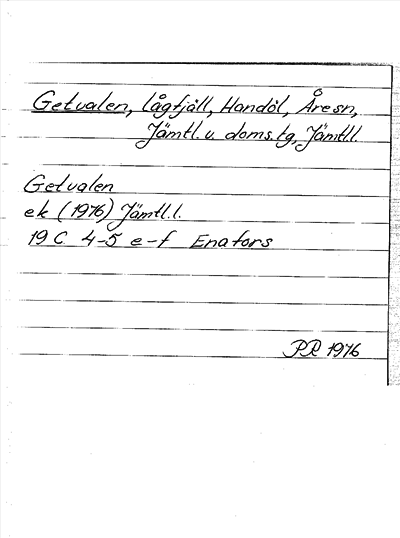 Getvalen, lågfjäll, Handöl, Åre sn,
Jämtl. v. doms.tg, Jämtl.l.
Getvalen
ek (1976) Jämtl.l.
19 C 4-5 e-f Enafors
PR 1976